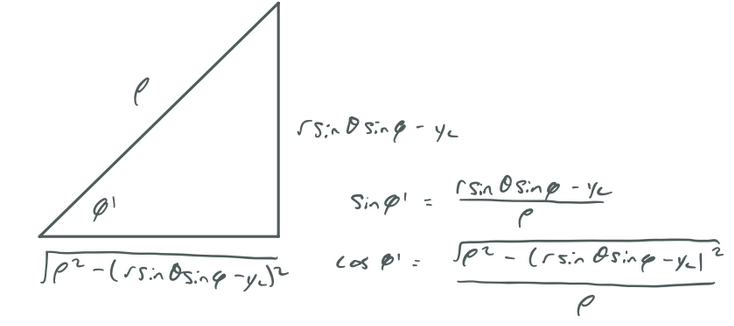 ρ
r sin θ sin φ - y_c
φ'
√(ρ² - (r sin θ sin φ - y_c)²)
sin φ' = (r sin θ sin φ - y_c)/ρ
cos φ' = √(ρ² - (r sin θ sin φ - y_c)²)/ρ